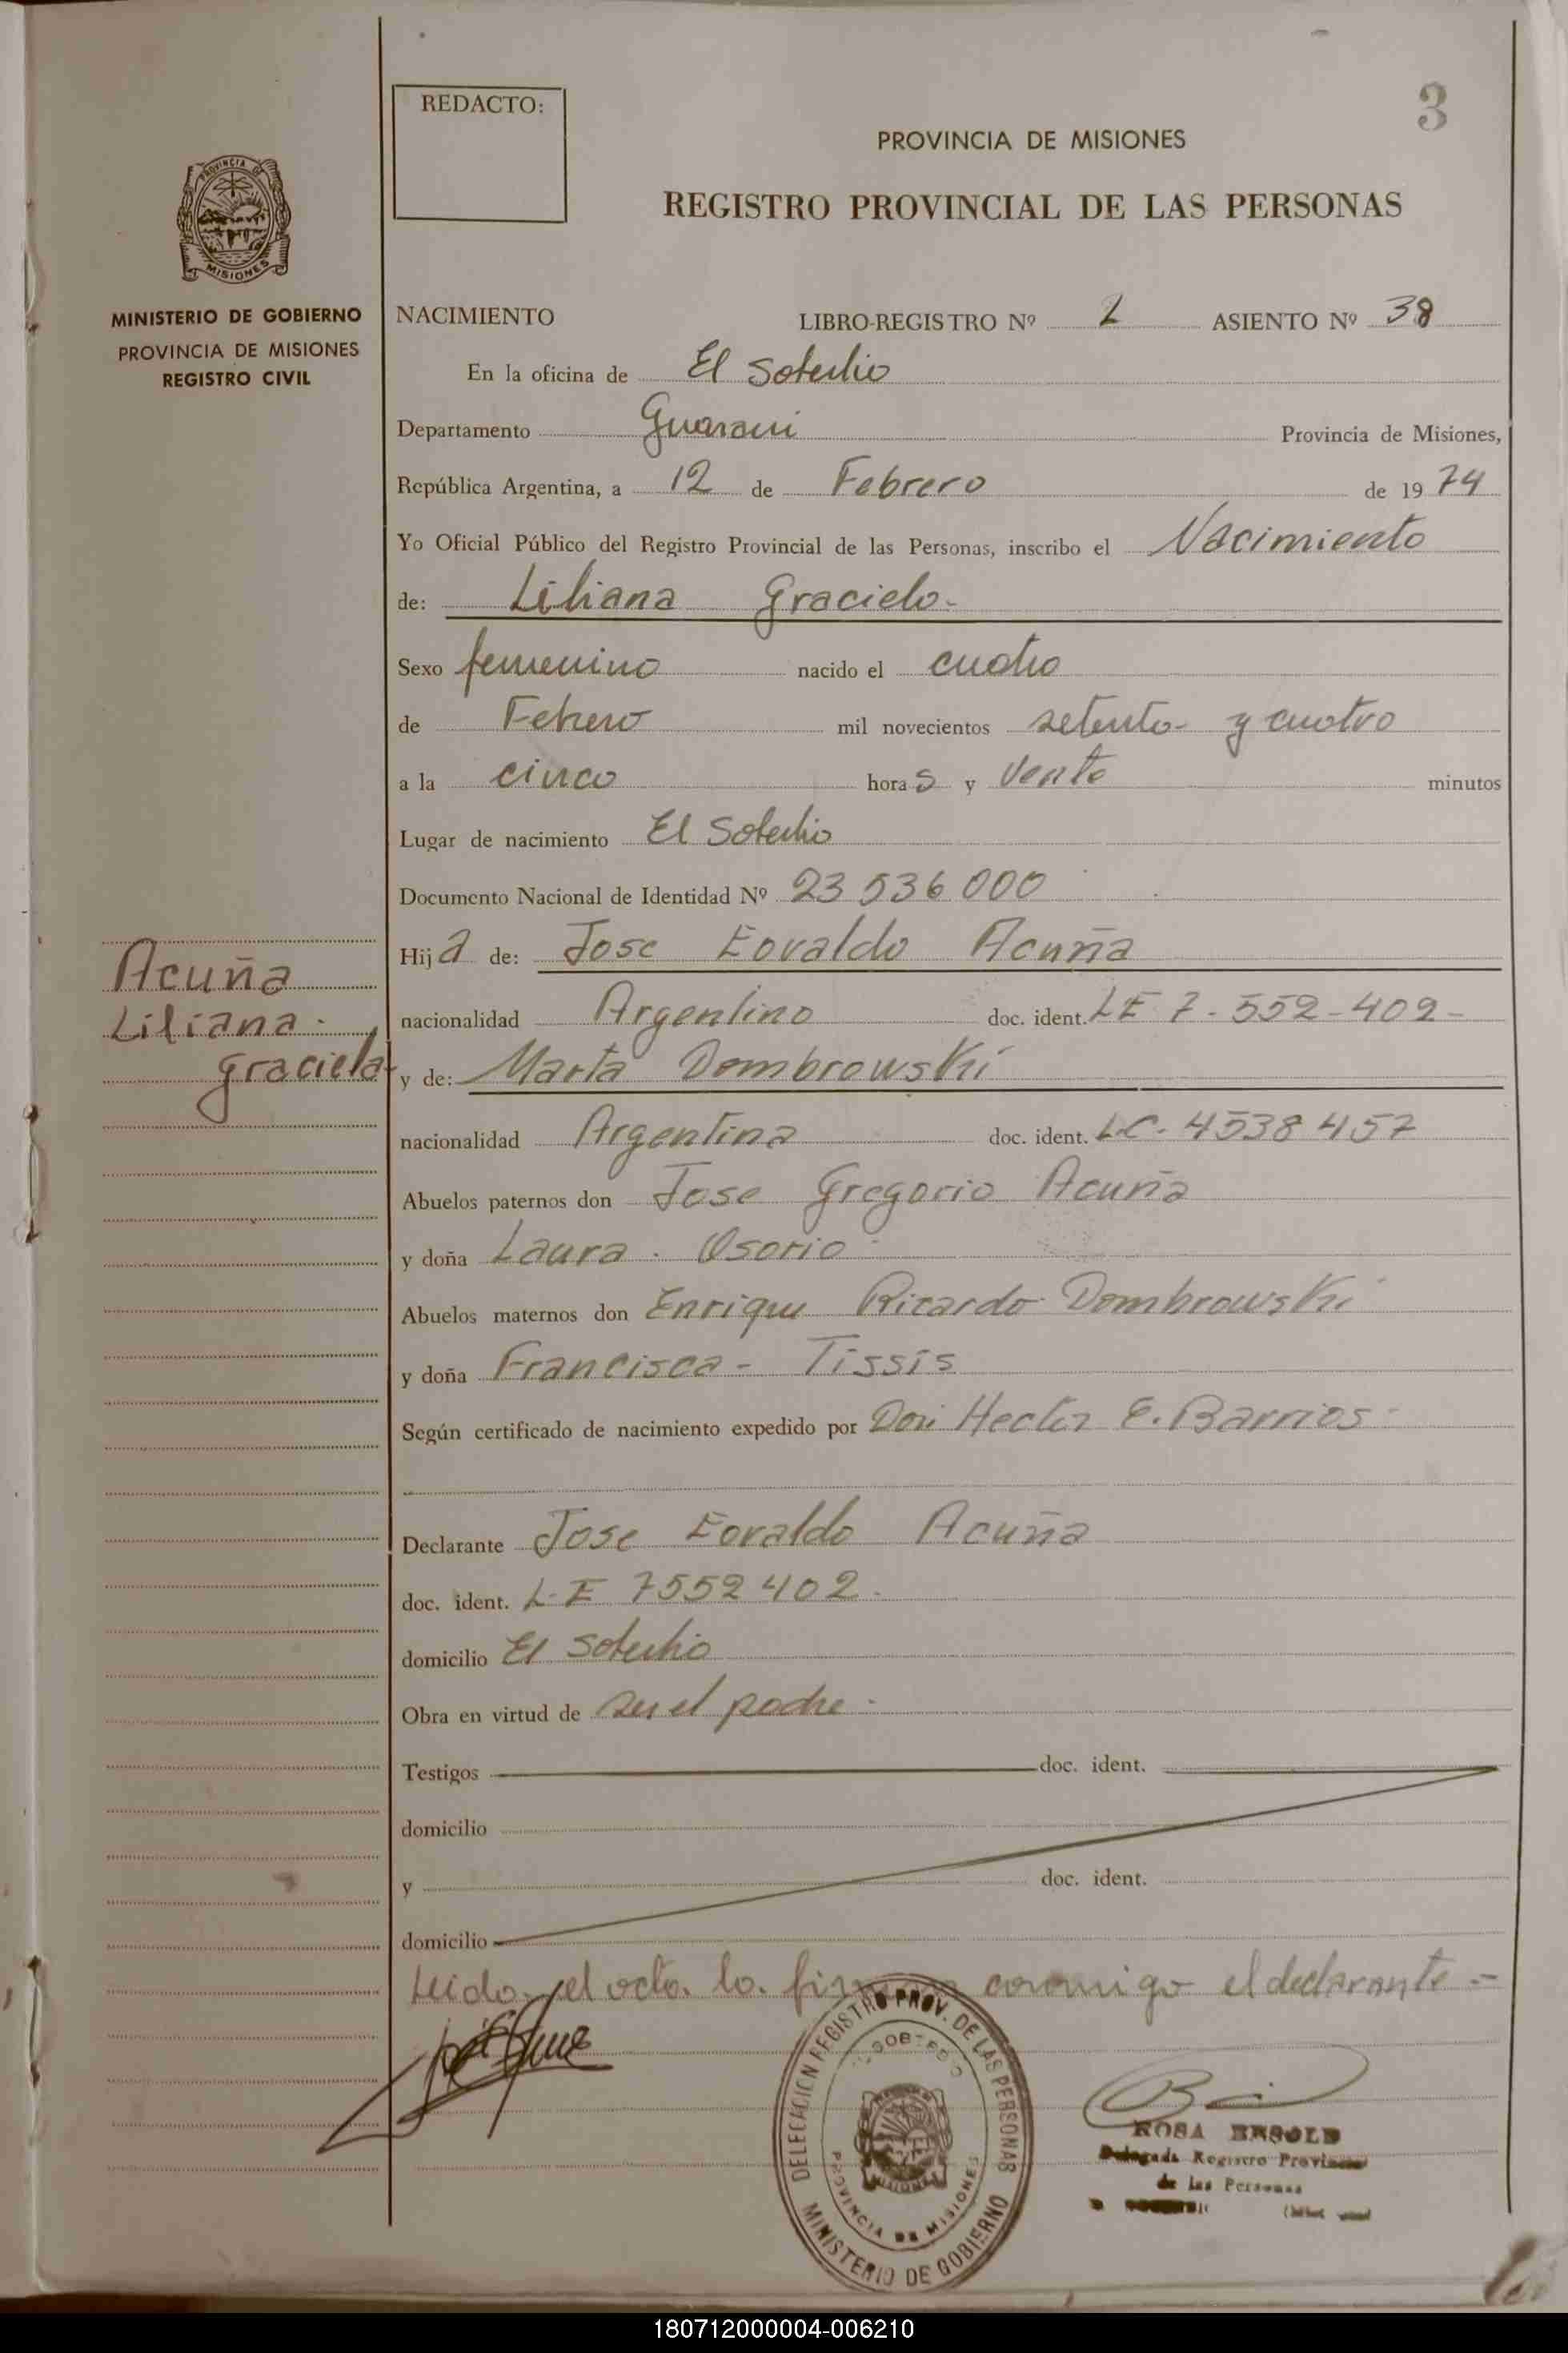 REDACTO:
3
PROVINCIA DE MISIONES
REGISTRO PROVINCIAL DE LAS PERSONAS
PROVINCIA DE
MISIONES
MINISTERIO DE GOBIERNO
PROVINCIA DE MISIONES
REGISTRO CIVIL
NACIMIENTO LIBRO-REGISTRO Nº 2 ASIENTO Nº 38
En la oficina de El Soberbio
Departamento Guarani Provincia de Misiones,
República Argentina, a 12 de Febrero de 1974
Yo Oficial Público del Registro Provincial de las Personas, inscribo el Nacimiento
de: Liliana Graciela-
Sexo femenino nacido el cuatro
de Febrero mil novecientos setenta y cuatro
a la cinco horas y vente minutos
Lugar de nacimiento El Soberbio
Documento Nacional de Identidad Nº 23 536 000
Acuña
Liliana
Graciela
Hija de: Jose Eovaldo Acuña
nacionalidad Argentino doc. ident. LE 7-552-402-
y de: Marta Dombrowski
nacionalidad Argentina doc. ident. L.C. 4538457
Abuelos paternos don Jose Gregorio Acuña
y doña Laura Osorio
Abuelos maternos don Enrique Ricardo Dombrowski
y doña Francisca - Tissis
Según certificado de nacimiento expedido por Don Hector E. Barrios
Declarante Jose Eovaldo Acuña
doc. ident. L.E 7552402
domicilio El Soberbio
Obra en virtud de ser el padre
Testigos doc. ident.
domicilio
y doc. ident.
domicilio
Leido el acta la conmigo el declarante =
DELEGACION REGISTRO PROV. DE LAS PERSONAS
MINISTERIO DE GOBIERNO
PROVINCIA DE MISIONES
MISIONES
ROSA BESOLD
Delegada Registro Provincial
de las Personas
180712000004-006210